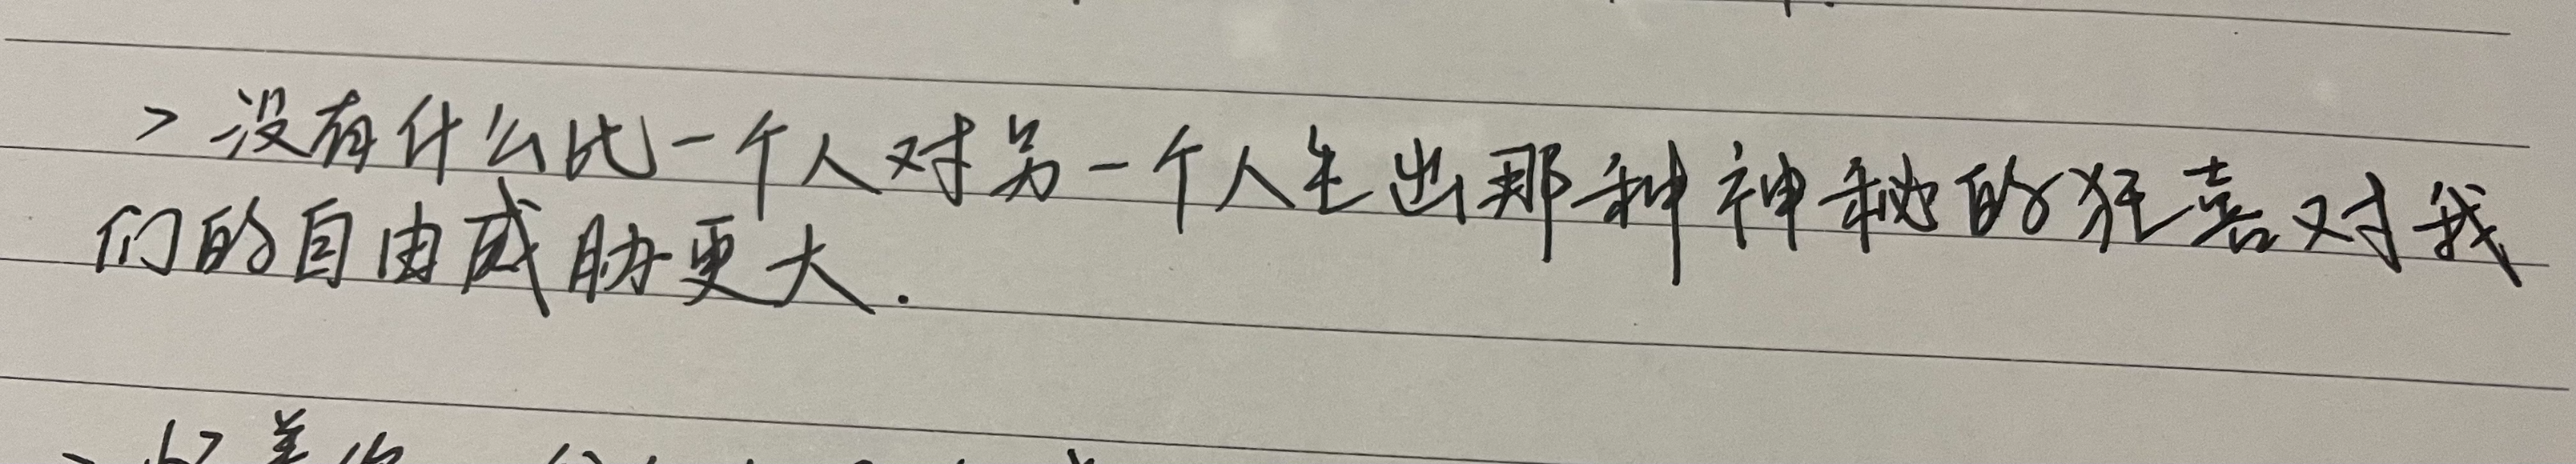 > 没有什么比一个人对另一个人生出那种神秘的狂喜对我
们的自由威胁更大.